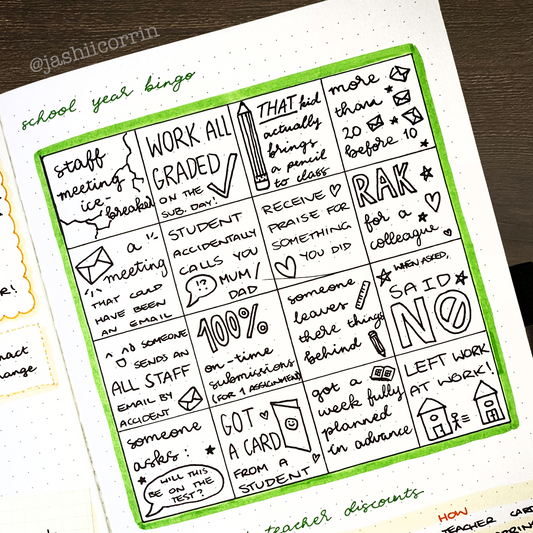 @jashiicorrin
school year bingo
staff
meeting
ice-
breaker
WORK ALL
GRADED
ON THE
SUB. DAY!
THAT kid
actually
brings
a pencil
to class
more
than
20
before 10
a
meeting
THAT COULD
HAVE BEEN
AN EMAIL
STUDENT
ACCIDENTALLY
CALLS YOU
!? MUM/
DAD
RECEIVE
PRAISE FOR
SOMETHING
YOU DID
RAK
for a
colleague
SOMEONE
SENDS AN
ALL STAFF
EMAIL BY
ACCIDENT
100%
on-time
submissions
(FOR 1 ASSIGNMENT)
someone
leaves
there things
behind
WHEN ASKED,
SAID
NO
someone
asks:
WILL THIS
BE ON THE
TEST?
GOT
A CARD
FROM A
STUDENT
got a
week fully
planned
in advance
LEFT WORK
AT WORK!
teacher discounts
HOW
TEACHER CARD
R!
act
hange